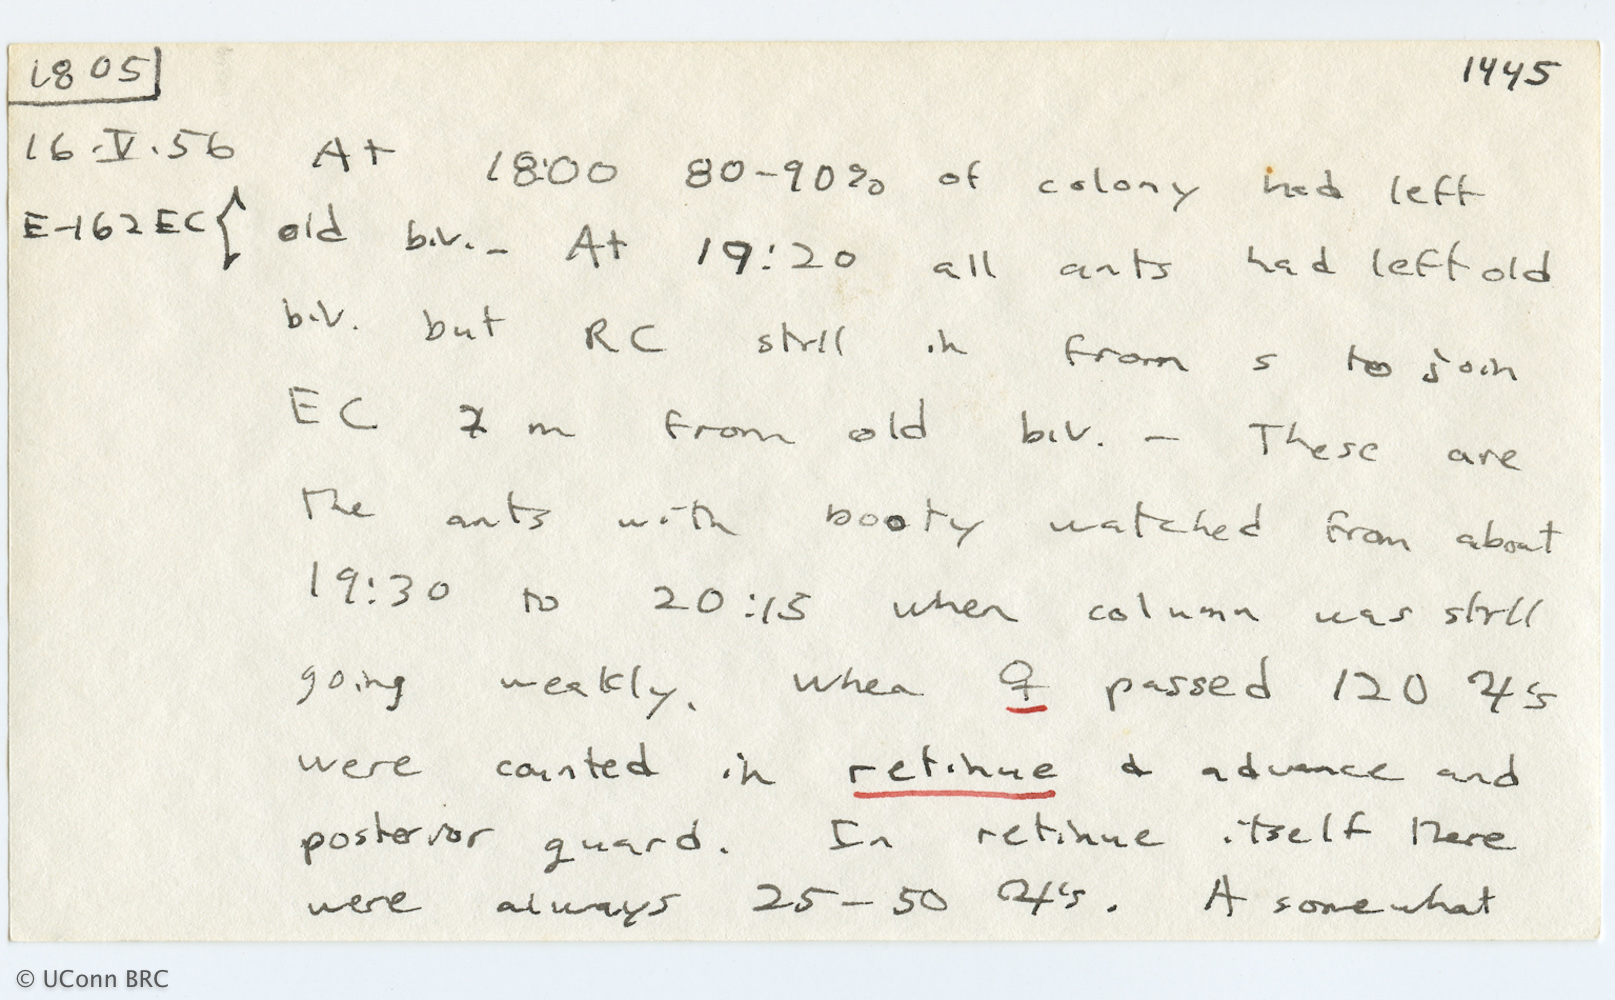 1805 1445
16.V.56 At 18:00 80-90% of colony had left
E-162EC { old biv. - At 19:20 all ants had left old
biv. but RC still in from s to join
EC 7 m from old biv. - These are
the ants with booty watched from about
19:30 to 20:15 when column was still
going weakly. When ♀ passed 120 ☿'s
were counted in retinue & advance and
posterior guard. In retinue itself there
were always 25-50 ☿'s. A somewhat
© UConn BRC